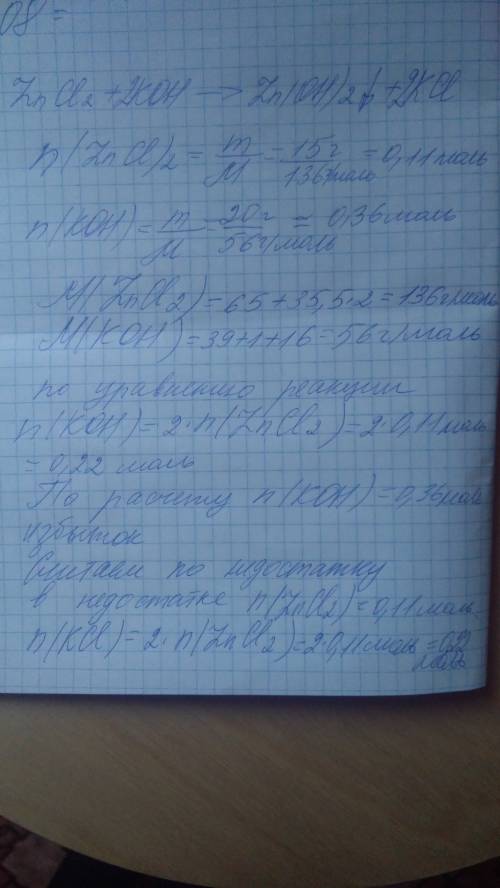 08 =
ZnCl₂ + 2KOH → Zn(OH)₂↓ + 2KCl
n(ZnCl)₂ = m/M = 15г/136г/моль = 0,11 моль
n(KOH) = m/M = 20г/56г/моль = 0,36 моль
M(ZnCl₂) = 65 + 35,5·2 = 136 г/моль
M(KOH) = 39+1+16 = 56 г/моль
по уравнению реакции
n(KOH) = 2·n(ZnCl₂) = 2·0,11 моль
= 0,22 моль
По расчету n(KOH) = 0,36 моль
избыток
Считаем по недостатку
в недостатке n(ZnCl₂) = 0,11 моль.
n(KCl) = 2·n(ZnCl₂) = 2·0,11 моль = 0,22
моль